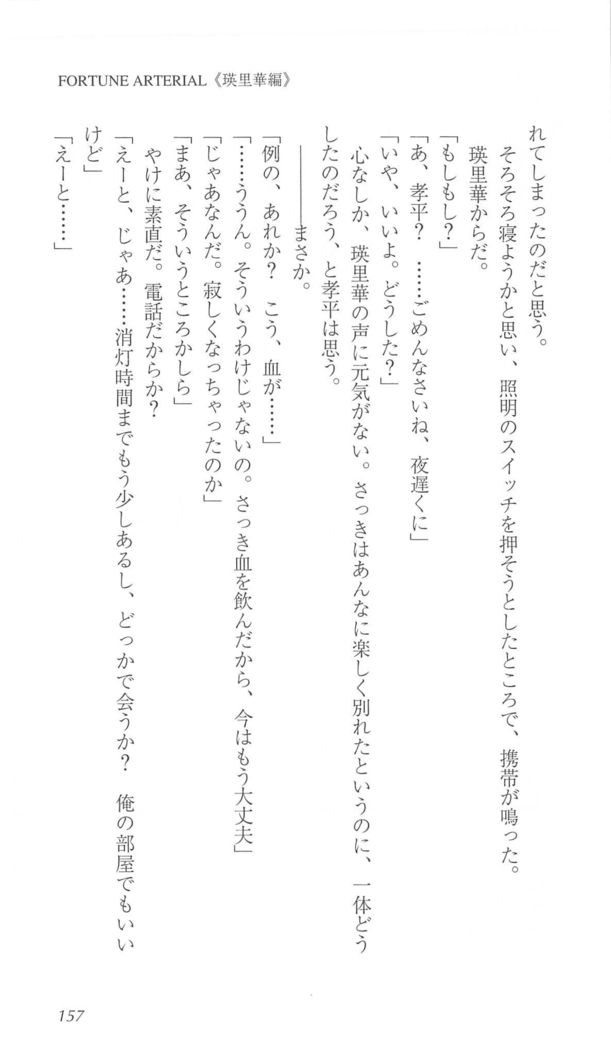 FORTUNE ARTERIAL《瑛里華編》
れてしまったのだと思う。
　そろそろ寝ようかと思い、照明のスイッチを押そうとしたところで、携帯が鳴った。
　瑛里華からだ。
「もしもし？」
「あ、孝平？　……ごめんなさいね、夜遅くに」
「いや、いいよ。どうした？」
　心なしか、瑛里華の声に元気がない。さっきはあんなに楽しく別れたというのに、一体どう
したのだろう、と孝平は思う。
　――――まさか。
「例の、あれか？　こう、血が……」
「……ううん。そういうわけじゃないの。さっき血を飲んだから、今はもう大丈夫」
「じゃあなんだ。寂しくなっちゃったのか」
「まあ、そういうところかしら」
　やけに素直だ。電話だからか？
「えーと、じゃあ……消灯時間までもう少しあるし、どっかで会うか？　俺の部屋でもいい
けど」
「えーと……」
157